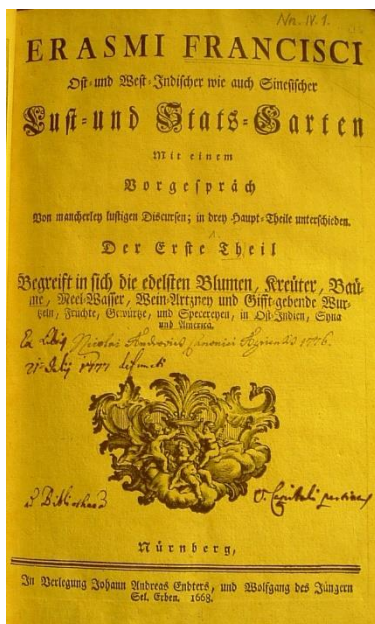 Nn. IV. 1.
ERASMI FRANCISCI
Ost- und West-Indischer wie auch Sinesischer
Lust- und Stats-Garten
Mit einem
Vorgespräch
Von mancherley lustigen Discursen; in drey Haupt-Theile unterschieden.
Der Erste Theil
Begreift in sich die edelsten Blumen, Kreüter, Baü-
me, Meel-Wasser, Wein-Artzney und Gifft-gebende Wur-
tzeln, Früchte, Gewürtze, und Specereyen, in Ost-Indien, Syna
und America.
Ex Libris Nicolai canonici 1776.
21 July 1777 defuncti
Bibliotheca Capituli
Nürnberg,
In Verlegung Johann Andreas Endters, und Wolfgang des Jüngern
Sel. Erben. 1668.